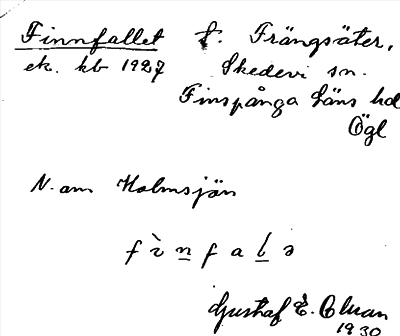 Finnfallet t. Frängsäter,
ek. kb 1927 Skedevi sn.
Finspånga läns hd
Ögl
N. om Holmsjön
f ı̀ n̲ f a l̲ ə
Gustaf E. Elvan
1930